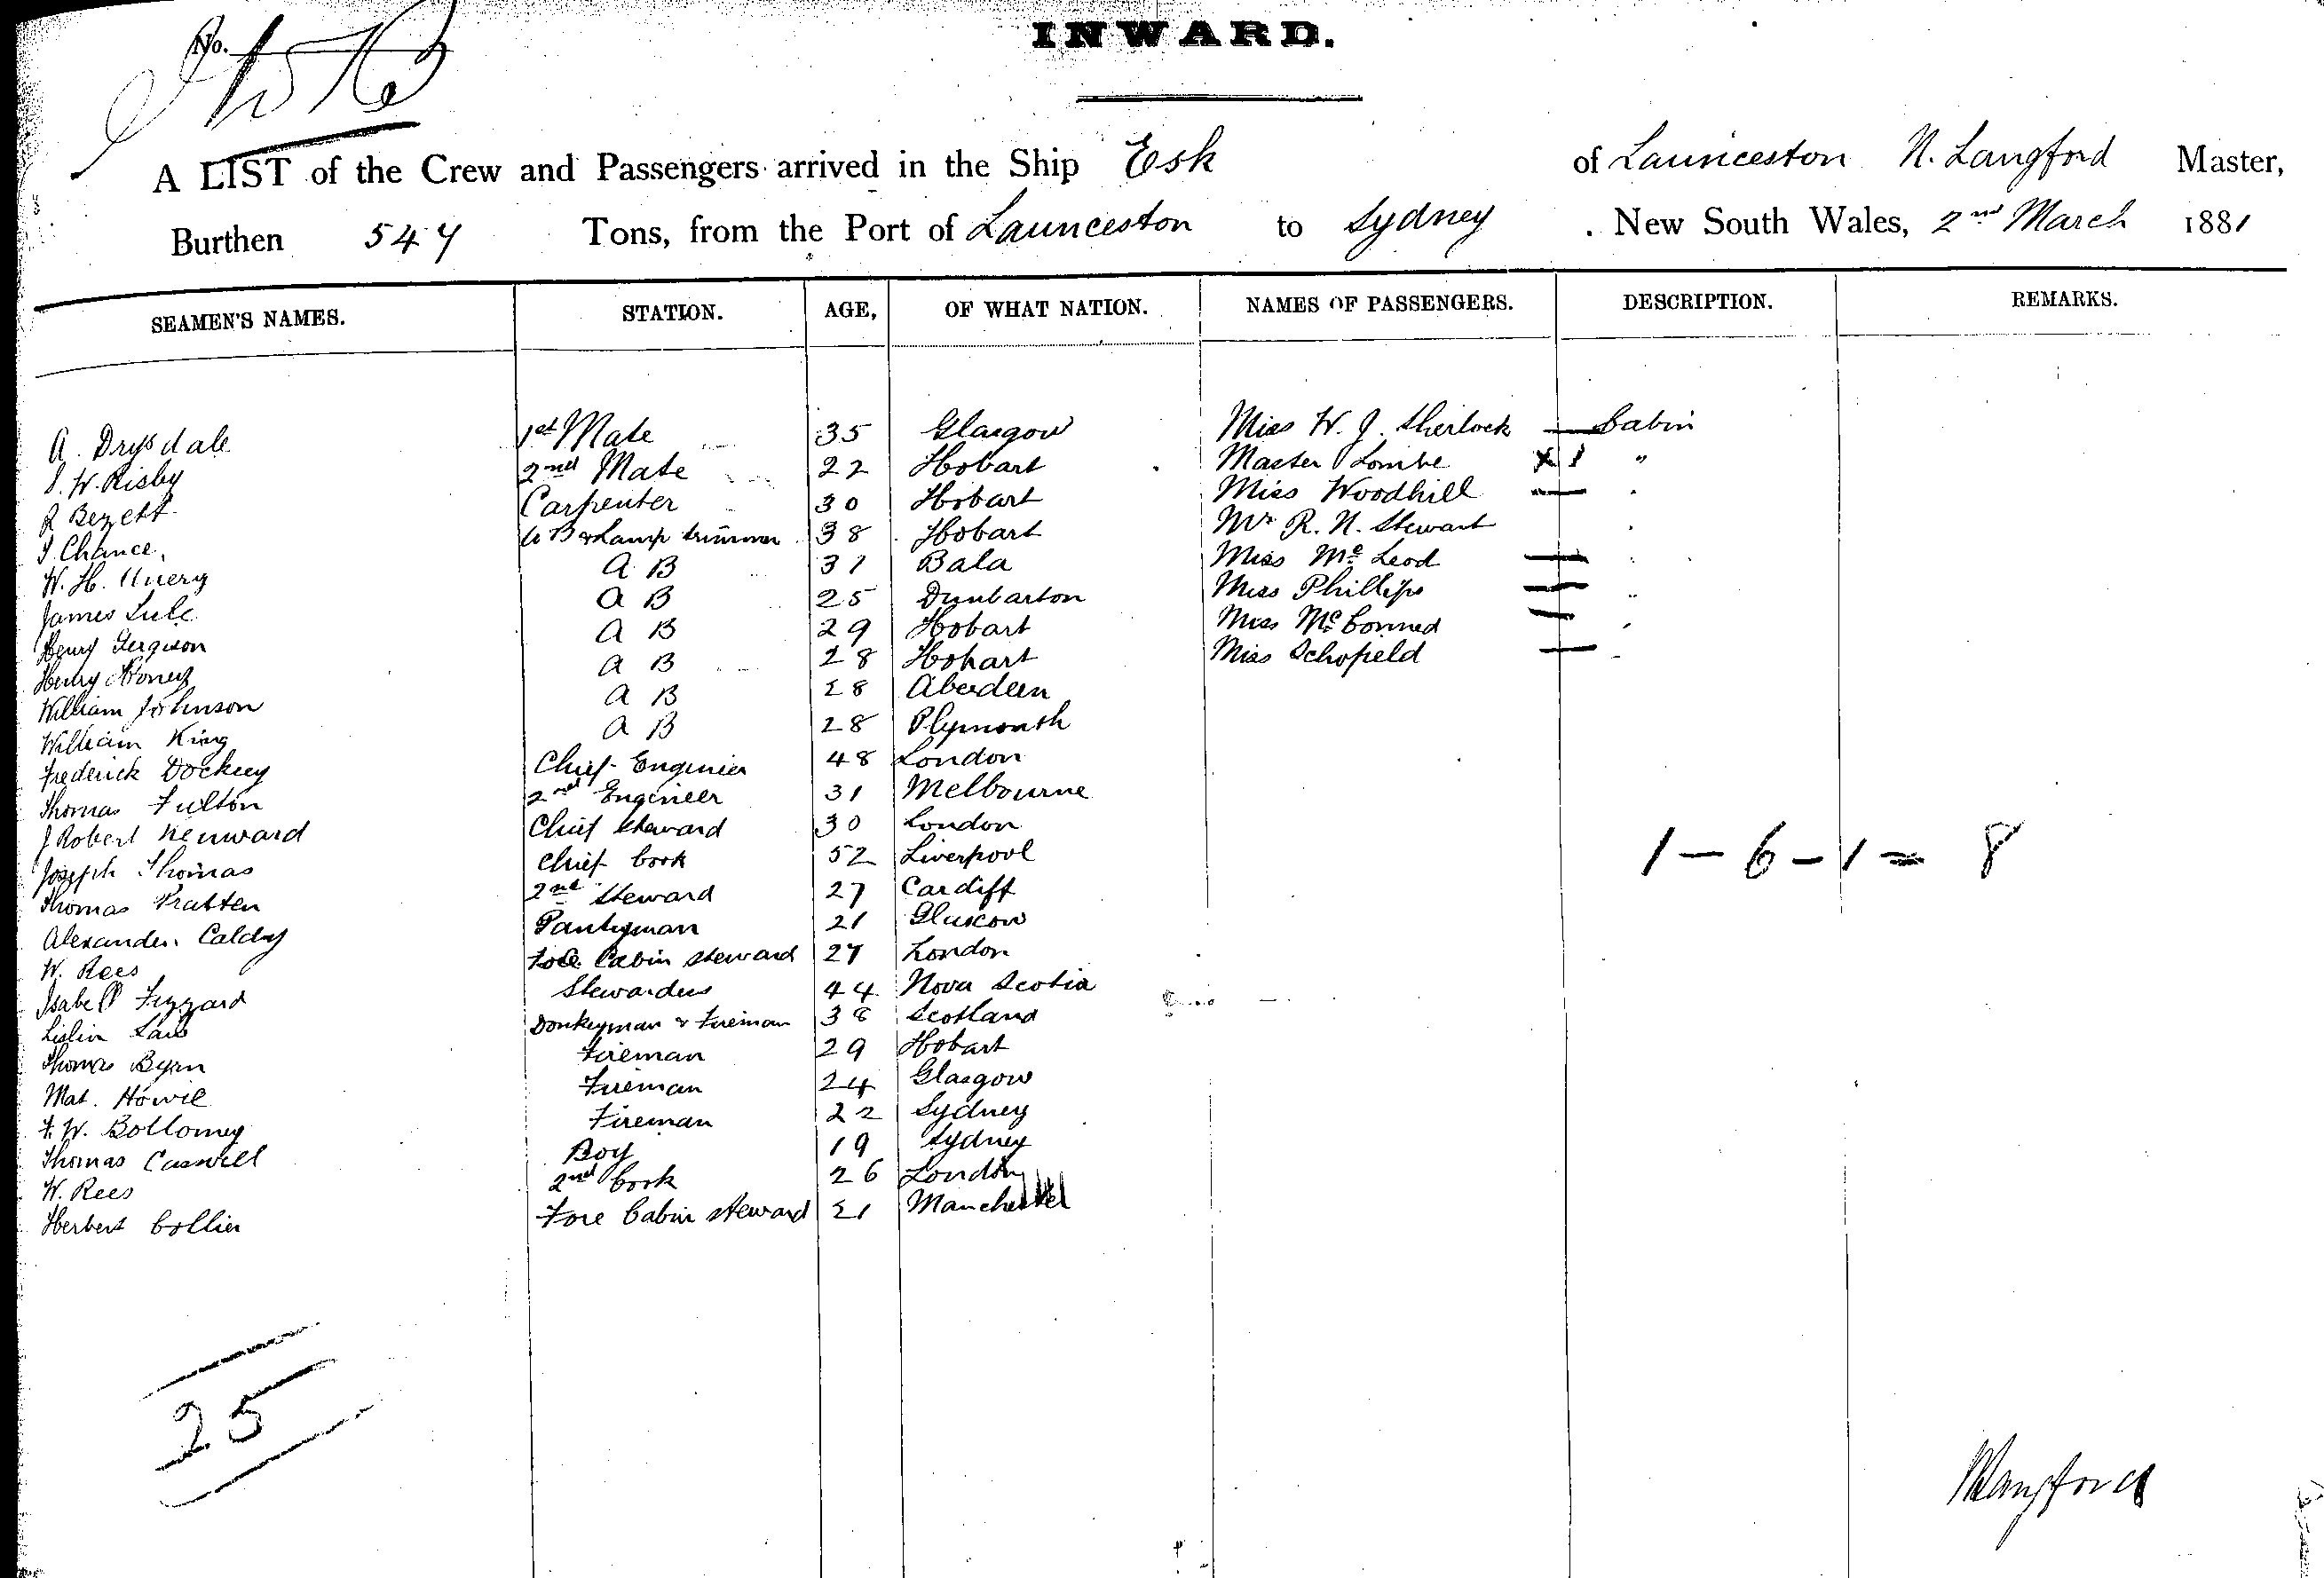 INWARD.
No.
A LIST of the Crew and Passengers arrived in the Ship Esk of Launceston N. Langford Master,
Burthen 547 Tons, from the Port of Launceston to Sydney . New South Wales, 2nd March 1881
SEAMEN'S NAMES. STATION. AGE, OF WHAT NATION. NAMES OF PASSENGERS. DESCRIPTION. REMARKS.
A. Drysdale 1st Mate 35 Glasgow Miss W. J. Sherlock — Cabin
W. Risby 2nd Mate 22 Hobart Master Lombe X 1 "
Carpenter 30 Hobart Miss Woodhill — "
Chance, A B & Lamp trimmer 38 Hobart Mr R. N. Stewart "
W. H. A B 31 Bala Miss Mc Leod — "
James A B 25 Dunbarton Miss Phillips — "
Henry Ferguson A B 29 Hobart Miss Mc Conned — "
Henry A B 28 Hobart Miss Schofield — "
William Johnson A B 28 Aberdeen
William King A B 28 Plymouth
Frederick Dockrey Chief Engineer 48 London
Thomas Fulton 2nd Engineer 31 Melbourne
J Robert Kenward Chief Steward 30 London
Joseph Thomas Chief Cook 52 Liverpool
Thomas Pratten 2nd Steward 27 Cardiff
Alexander Pantryman 21 Glascow
W. Rees Fore Cabin Steward 27 London
Isabel Fizzard Stewardess 44 Nova Scotia
Donkeyman & Fireman 38 Scotland
Thomas Byrn Fireman 29 Hobart
Mat. Howie Fireman 24 Glasgow
F. W. Bollomey Fireman 22 Sydney
Thomas Caswell Boy 19 Sydney
W. Rees 2nd Cook 26 London
Herbert Collier Fore Cabin Steward 21 Manchester
1 — 6 — 1 = 8
25
N Langford